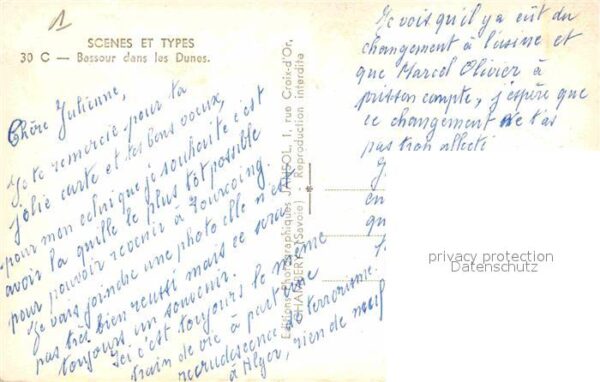 1
SCENES ET TYPES
30 C — Bassour dans les Dunes.
Chère Julienne,
Je te remercie pour ta
jolie carte et tes bons voeux,
pour mon je souhaite c'est
avoir la quille le plus tôt possible
pour pouvoir revenir à Tourcoing.
Je vais joindre une photo elle n'est
pas très bien réussi mais ce sera
toujours un souvenir.
Ici c'est toujours le même
train de vie à part une
recrudescence de terrorisme
à Alger, rien de neuf
Editions Photographiques JANSOL, 1, rue Croix-d'Or,
CHAMBÉRY (Savoie) - Reproduction interdite
Je vois qu'il y a eût du
changement à l'usine et
que Marcel Olivier à
prisson compte, j'espère que
ce changement ne t'as
pas trop affecti
J
en
qu
privacy protection
Datenschutz